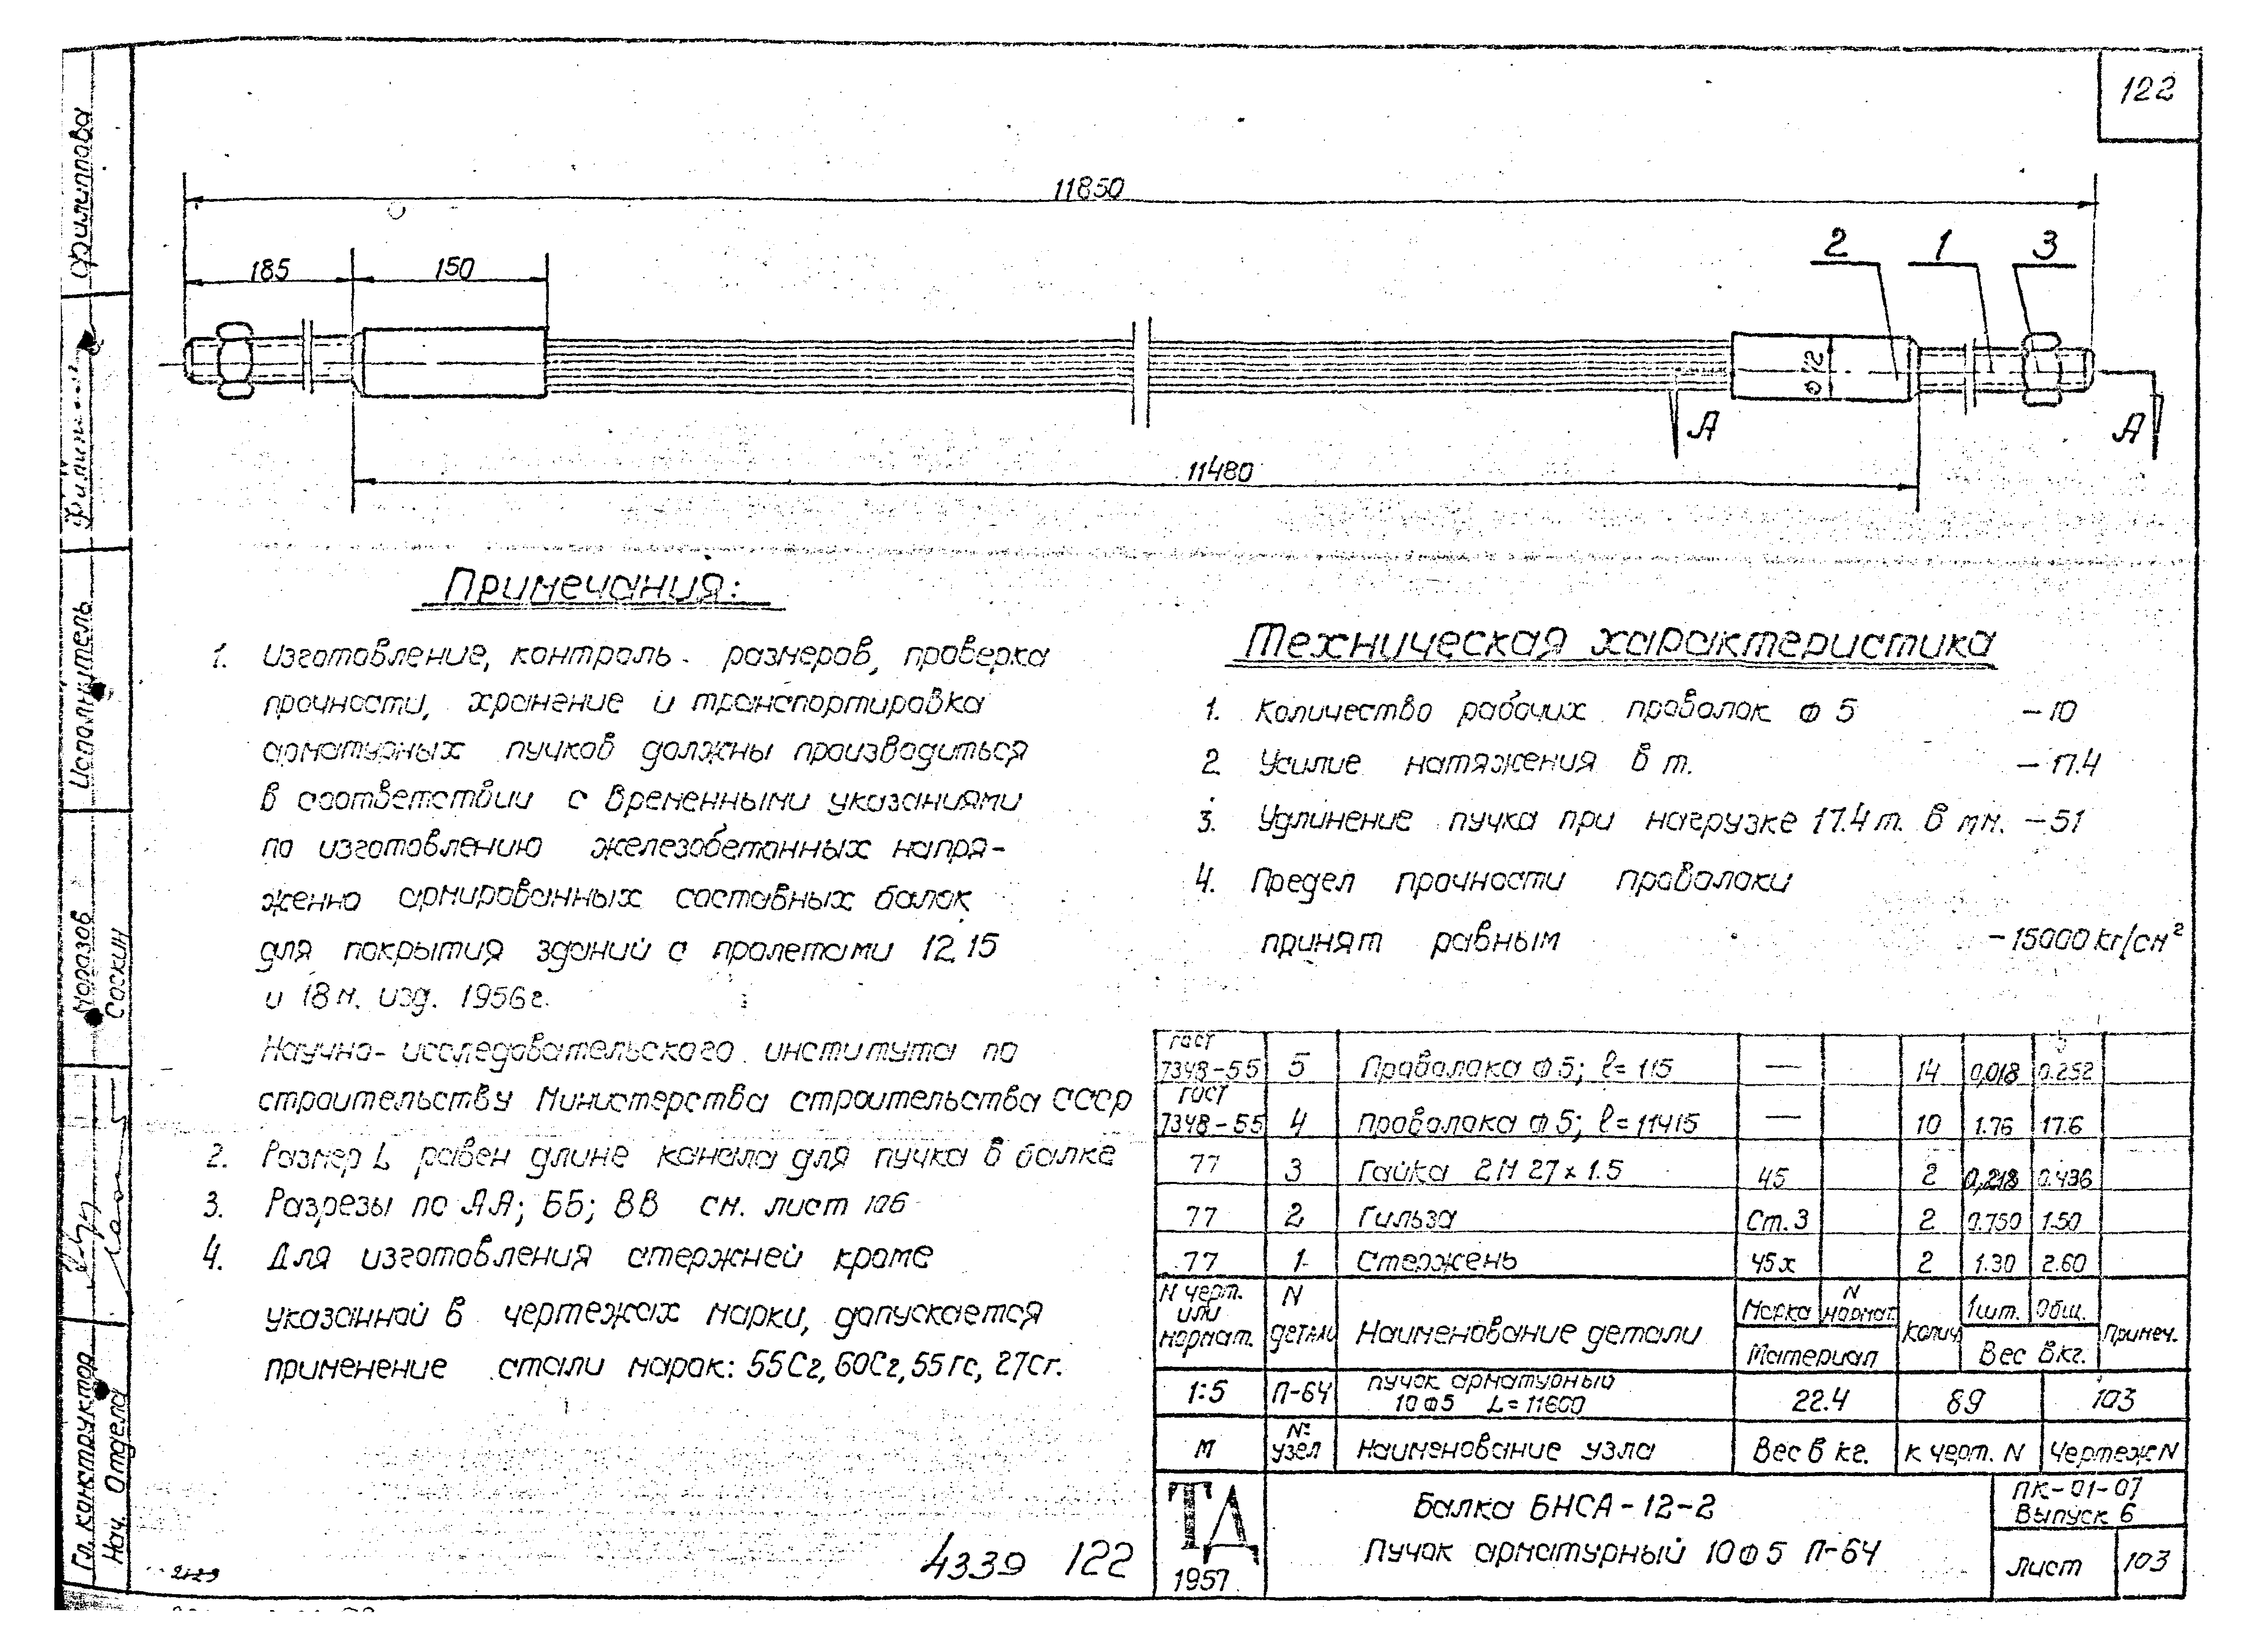 122
11850
185
150
2
1
3
A
A
11480
Примечания:
1. Изготовление, контроль размеров, проверка
прочности, хранение и транспортировка
арматурных пучков должны производиться
в соответствии с временными указаниями
по изготовлению железобетонных напря-
женно армированных составных балок
для покрытия зданий с пролетами 12, 15
и 18 м. изд. 1956 г.
Научно-исследовательского института по
строительству Министерства строительства СССР
2. Размер L равен длине канала для пучка в балке
3. Разрезы по АА; ББ; ВВ см. лист 106
4. Для изготовления стержней кроме
указанной в чертежах марки, допускается
применение стали марок: 55Сг, 60Сг, 55гс, 27Сг.
Техническая характеристика
1. Количество рабочих проволок Ф 5 – 10
2. Усилие натяжения в т. – 17.4
3. Удлинение пучка при нагрузке 17.4 т. в мм. – 51
4. Предел прочности проволоки
принят равным – 15000 кг/см²
ГОСТ 7348-55 5 Проволока Ф 5; ℓ= 115 — 14 0,018 0.252
ГОСТ 7348-55 4 Проволока Ф 5; ℓ= 11415 — 10 1.76 17.6
77 3 Гайка 2М 27 х 1.5 45 2 0,218 0.436
77 2 Гильза Ст. 3 2 0.750 1.50
77 1 Стержень 45х 2 1.30 2.60
N черт. или нормат. N детали Наименование детали Марка N нормат. Материал Колич. 1 шт. Общ. Вес в кг. Примеч.
1:5 П-64 Пучок арматурный 10 Ф 5 L= 11600 22.4 89 103
М № узел Наименование узла Вес в кг. К черт. N Чертеж N
ТД
1957
Балка БНСА-12-2
Пучок арматурный 10 Ф 5 П-64
ПК-01-07
Выпуск 6
Лист 103
4339 122
Филиппова
Исполнитель
Морозов
Соскин
Гл. конструктор
Нач. Отдела